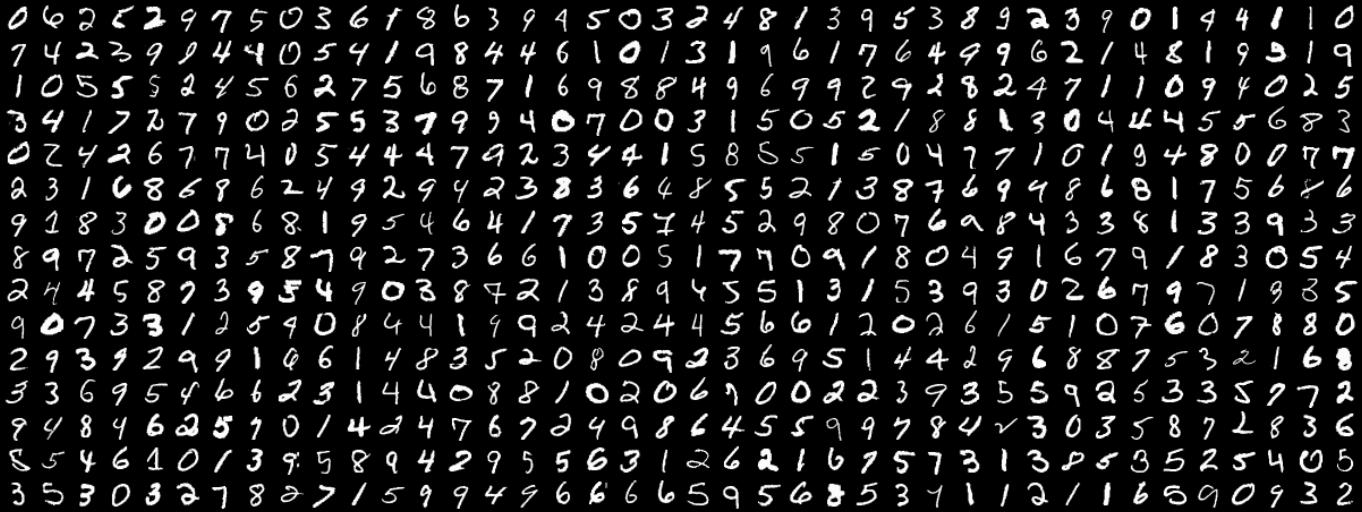 0 6 2 5 2 9 7 5 0 3 6 1 8 6 3 9 4 5 0 3 2 4 8 1 3 9 5 3 8 9 2 3 9 0 1 9 4 1 1 0
7 4 2 3 9 9 4 4 0 5 4 1 9 8 4 4 6 1 0 1 3 1 9 6 1 7 6 4 9 9 6 2 1 4 8 1 9 3 1 9
1 0 5 5 5 2 4 5 6 2 7 5 6 8 7 1 6 9 8 8 4 9 6 9 9 2 9 2 8 2 4 7 1 1 0 9 4 0 2 5
3 4 1 7 2 7 9 0 2 5 5 3 7 9 9 4 0 7 0 0 3 1 5 0 5 2 1 8 8 1 3 0 4 4 4 5 5 6 8 3
0 2 4 2 6 7 7 4 0 5 4 4 4 7 9 2 3 4 4 1 5 8 5 5 1 5 0 4 7 7 1 0 1 9 4 8 0 0 7 7
2 3 1 6 8 6 8 6 2 4 9 2 9 4 2 3 8 3 6 4 8 5 5 2 1 3 8 7 6 9 9 8 6 8 1 7 5 6 8 6
9 1 8 3 0 0 8 6 8 1 9 5 4 6 4 1 7 3 5 7 4 5 2 9 8 0 7 6 9 8 4 3 3 8 1 3 3 9 3 3
8 9 7 2 5 9 3 5 8 7 9 2 7 3 6 6 1 0 0 5 1 7 7 0 9 1 8 0 4 9 1 6 7 9 1 8 3 0 5 4
2 4 4 5 8 7 3 9 5 4 9 0 3 8 7 2 1 3 8 9 4 5 5 1 3 1 5 3 9 3 0 2 6 7 9 7 1 9 3 5
9 0 7 3 3 1 2 5 9 0 8 4 4 1 9 9 2 4 2 4 4 5 6 6 1 2 0 2 6 1 5 1 0 7 6 0 7 8 8 0
2 9 3 9 2 9 9 1 6 6 1 4 8 3 5 2 0 8 0 9 2 3 6 9 5 1 4 4 2 9 6 8 8 7 5 3 2 1 6 8
3 3 6 9 5 4 6 6 2 3 1 4 4 0 8 8 1 0 2 0 6 7 0 0 2 2 3 9 3 5 5 9 2 5 3 3 5 7 7 2
9 4 8 4 6 2 5 7 0 1 4 2 4 7 6 7 2 4 9 8 6 4 5 5 9 9 7 8 4 2 3 0 3 5 8 7 2 8 3 6
8 5 4 6 1 0 1 3 9 5 8 9 4 2 9 5 5 6 3 1 2 6 2 1 6 7 5 7 3 1 3 8 5 3 5 2 5 4 0 5
3 5 3 0 3 2 7 8 2 7 1 5 9 9 4 9 6 6 6 6 5 9 5 6 8 5 3 9 1 1 2 1 1 6 5 9 0 9 3 2